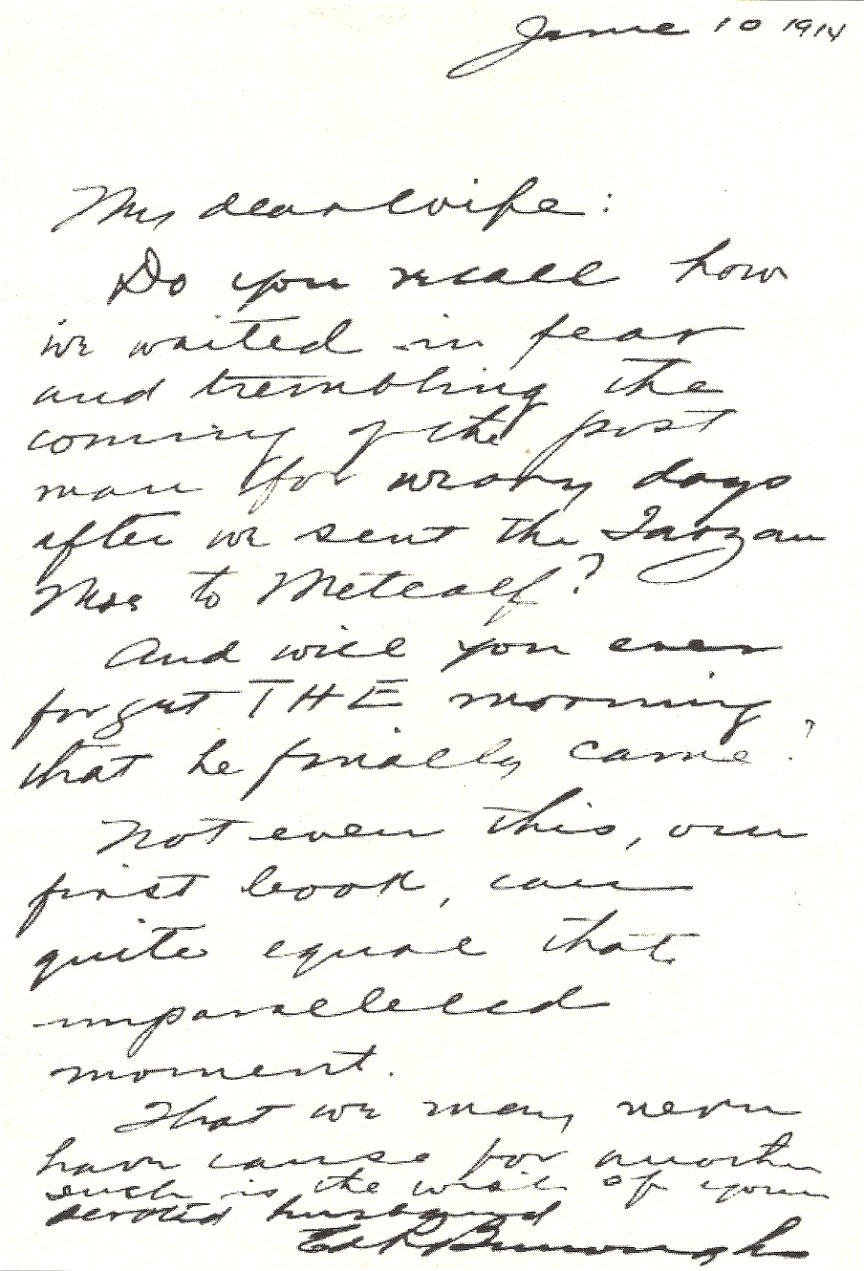 June 10 1914
My dear wife:
Do you recall how
we waited in fear
and trembling the
coming of the post
man for weary days
after we sent the Tarzan
Mss to Metcalf?
And will you ever
forget THE morning
that he finally came?
Not even this, our
first book, can
quite equal that
unparalleled
moment.
That we may never
have cause for another
such is the wish of your
devoted husband
Ed R Burroughs